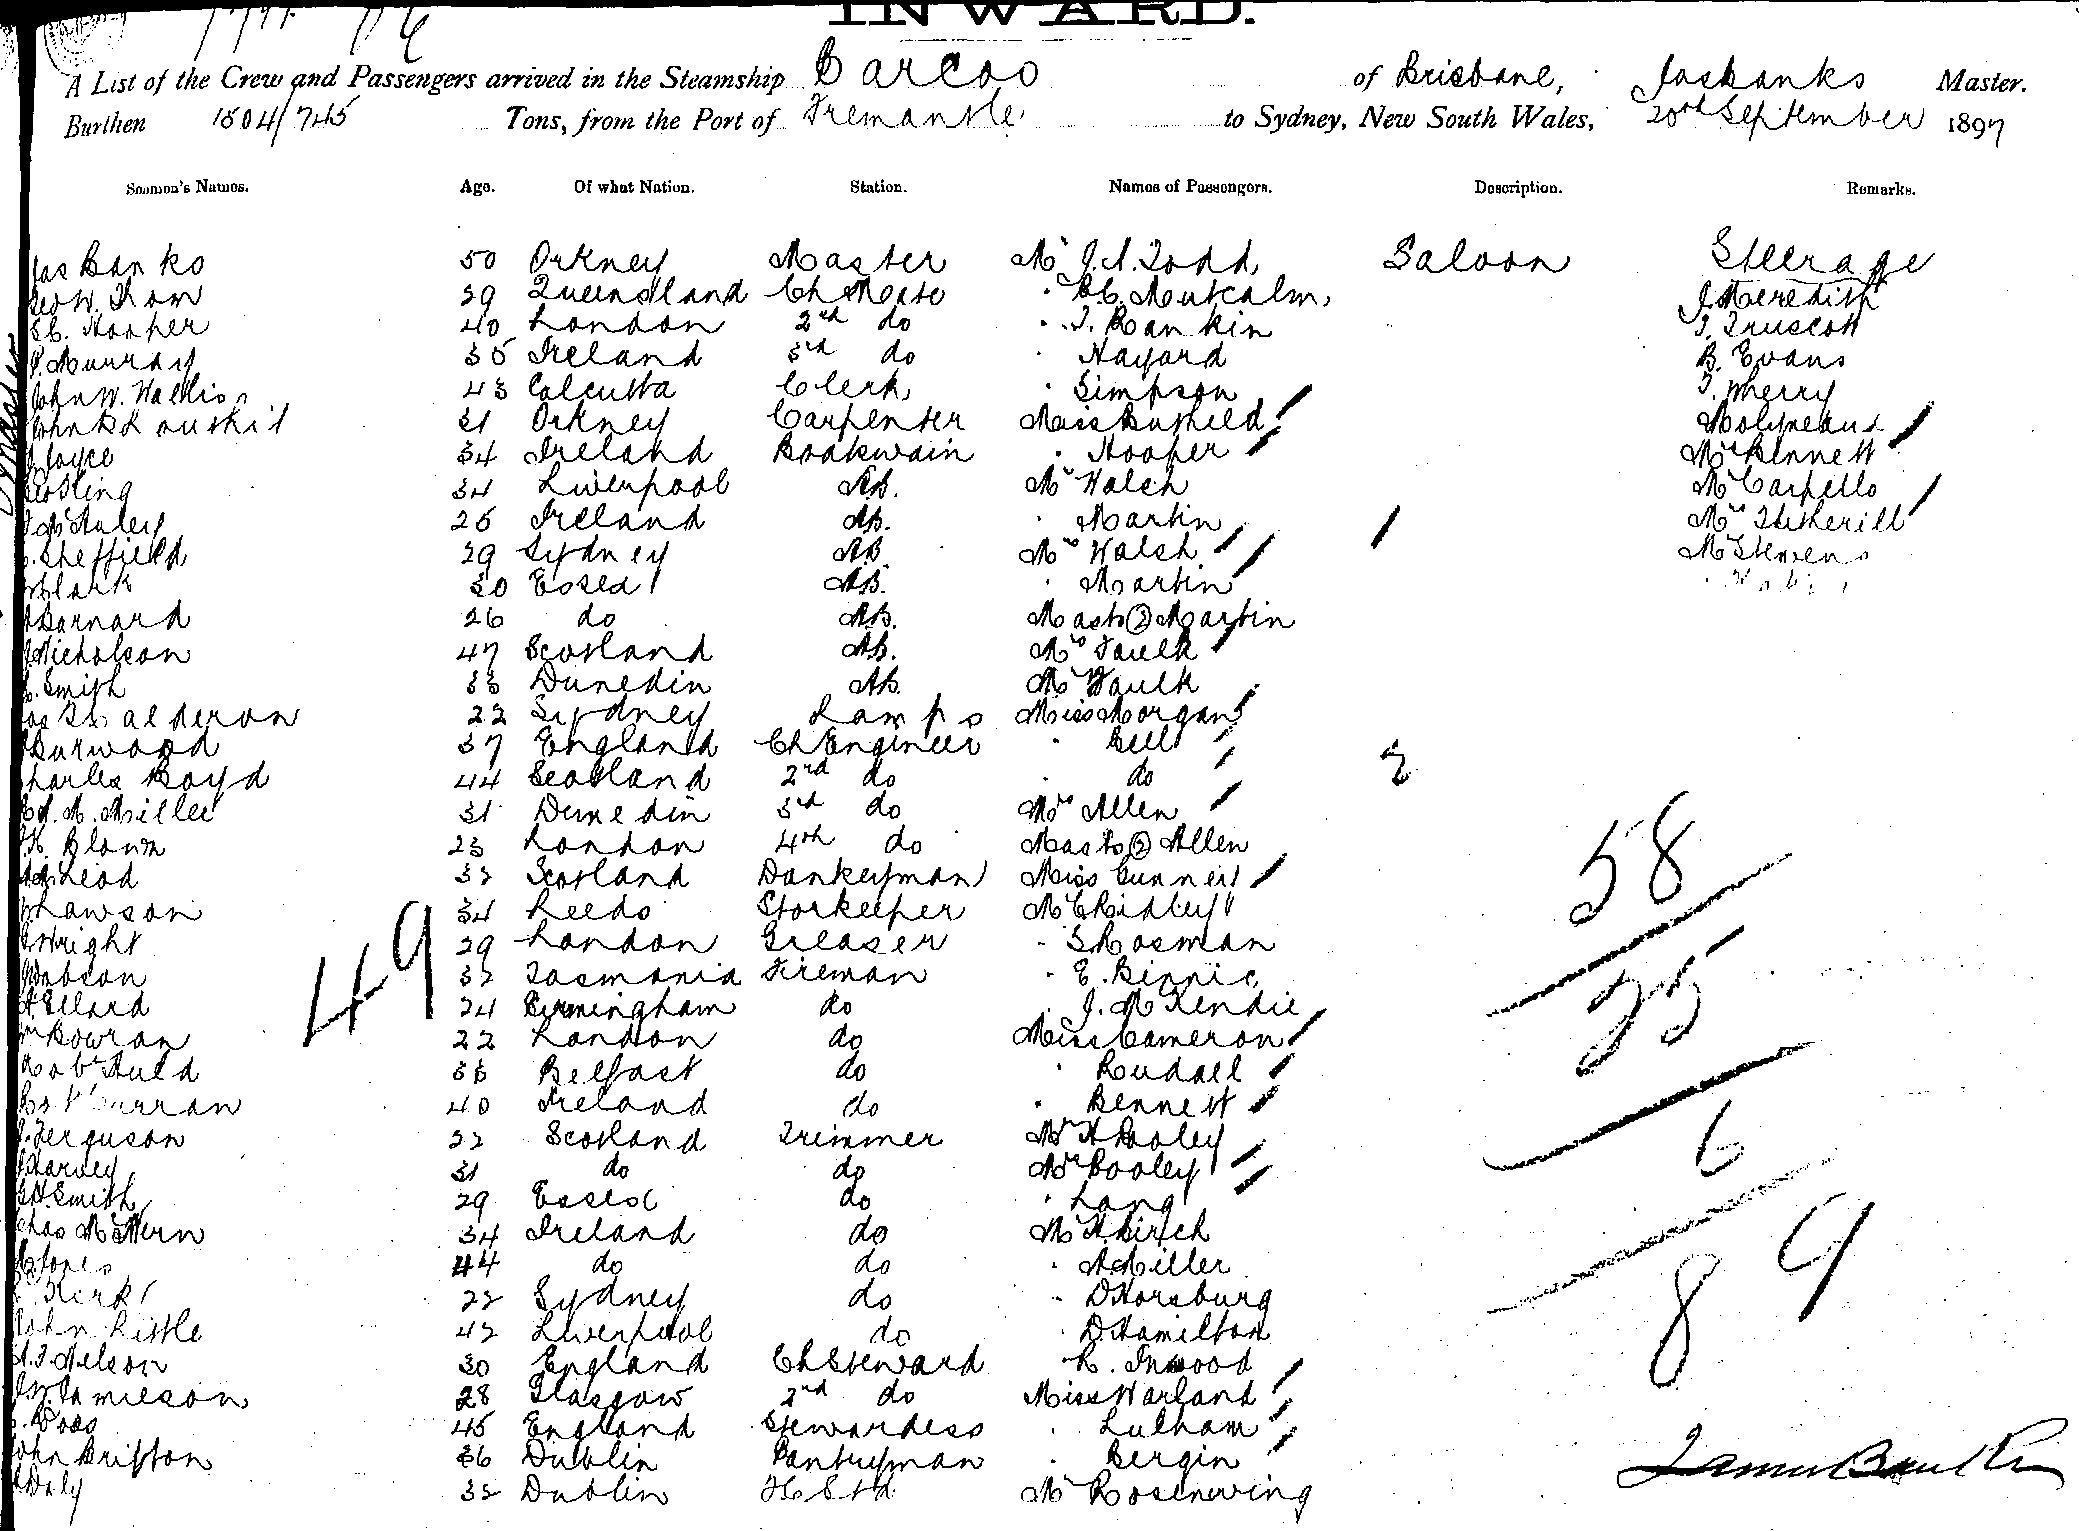 INWARD.
A List of the Crew and Passengers arrived in the Steamship Barcoo of Brisbane, Jas Banks Master.
Burthen 1504/745 Tons, from the Port of Fremantle to Sydney, New South Wales, 20th September 1897
Seamen's Names. Age. Of what Nation. Station. Names of Passengers. Description. Remarks.
Jas Banks 50 Orkney Master Mr J. A. Todd Saloon Steerage
Geo W. Thom 29 Queensland Ch Mate " Metcalm, J Meredith
Hooper 40 London 2nd do " J. Rankin J. Truscott
Murray 35 Ireland 3rd do " Hayard B. Evans
John W. Wallis 43 Calcutta Clerk " Simpson T. Wherry
John 31 Orkney Carpenter Miss Molyneaux
Joyce 34 Ireland Boatswain " Hooper Mrs Bennett
Gosling 34 Liverpool AB. Mr Walsh Mr Carpello
McAuley 25 Ireland AB. " Martin Mrs
Sheffield 29 Sydney AB Mrs Walsh Mr Stevens
Clark 30 Essex AB. " Martin
Barnard 26 do AB. Mast (2) Martin
Nicholson 47 Scotland AB. Mrs Faulk
Smith 33 Dunedin AB. Mr Faulk
Calderon 22 Sydney Lamps Miss Morgan
Burwood 37 England Ch Engineer " Bell
Charles Boyd 44 Scotland 2nd do " do 2
Miller 31 Dunedin 3rd do Mrs Allen
23 London 4th do Mast (2) Allen 58
McLeod 32 Scotland Donkeyman Miss
Lawson 34 Leeds Storkeeper Mr C Ridley
49
Wright 29 London Greaser " Mosman
Dobson 32 Tasmania Fireman " E. Binnie 25
Ellard 24 Birmingham do " J. McKendie
Cowran 22 London do Miss Cameron
Robt Auld 33 Belfast do " Rudall
Curran 40 Ireland do " Bennett
J. Ferguson 22 Scotland Trimmer Mr H Pooley 6
Harvey 31 do do Mrs Pooley
Smith 29 Essex do " Lang
Chas 34 Ireland do Mr H. Hirsch 89
Jones 44 do do " A Miller
Kirk 22 Sydney do " D Horsburg
John Little 42 Liverpool do " D. Hamilton
Nelson 30 England Ch Steward " R. Inwood
Jamieson 28 Glasgow 2nd do Miss Warland
45 England Stewardess " Lulham
John Britton 36 Dublin Pantryman " Bergin James Banks
Daly 32 Dublin Mr Rosenwing